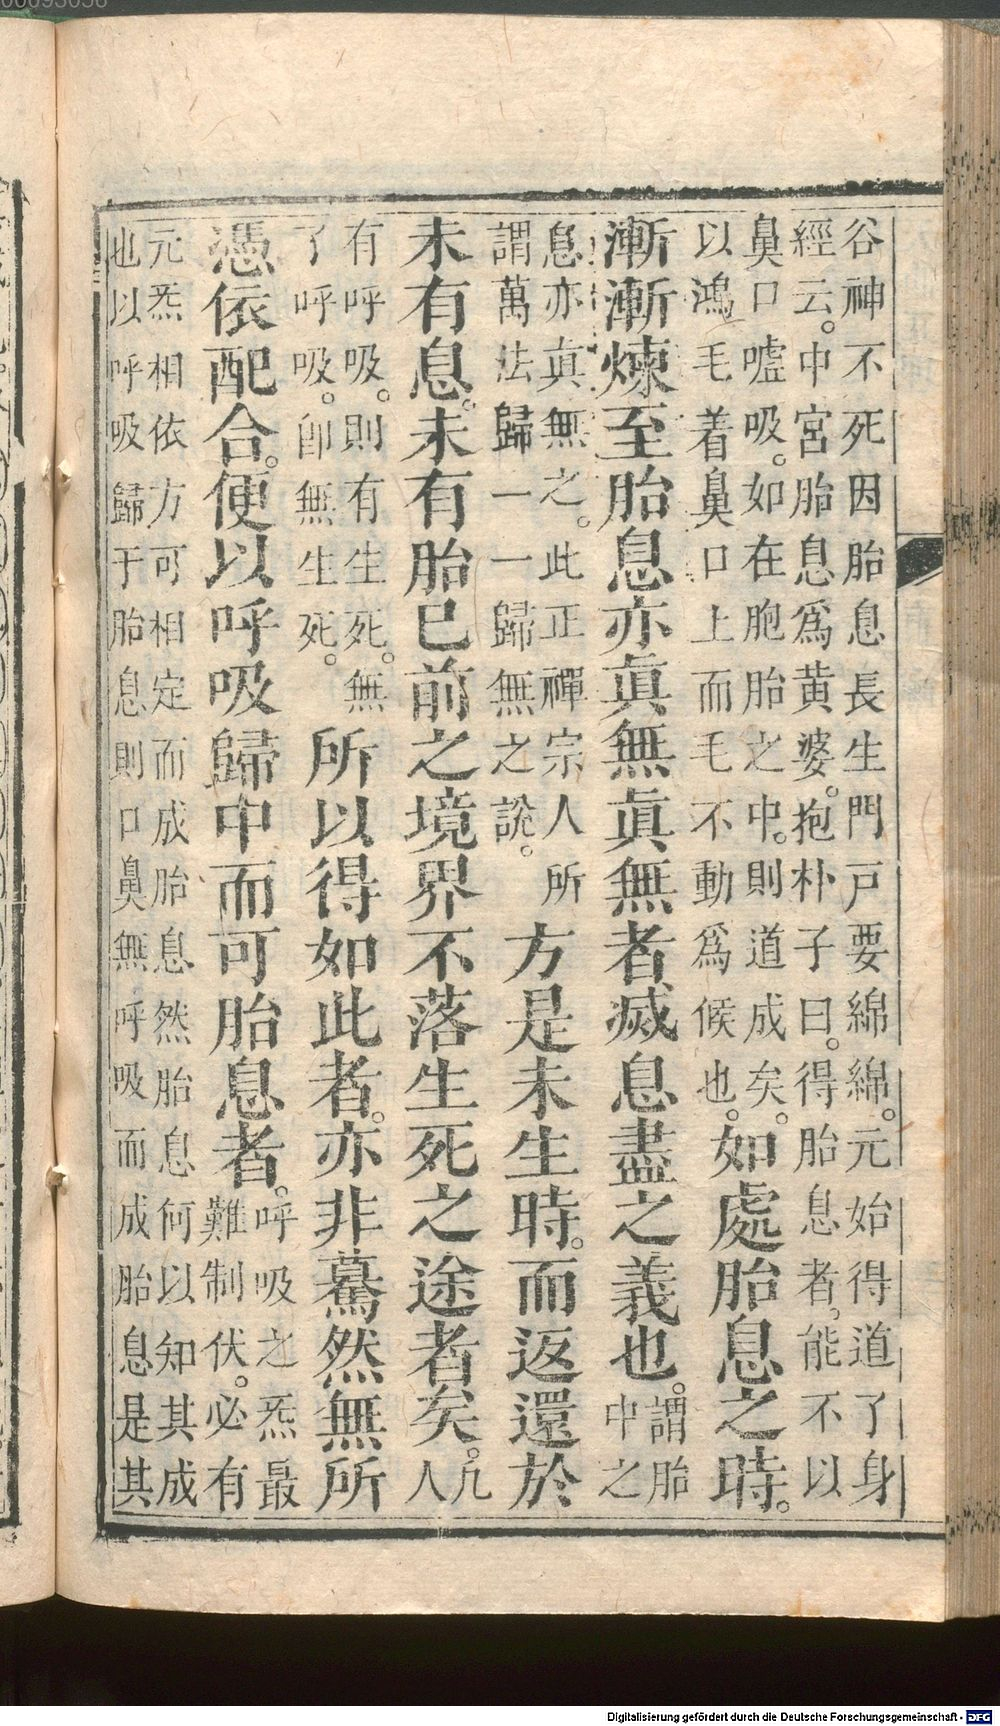 谷神不死因胎息長生門戶要綿綿。元始得道了身
經云。中宮胎息爲黃婆。抱朴子曰。得胎息者。能不以
鼻口噓吸。如在胞胎之中。則道成矣。
以鴻毛着鼻口上而毛不動爲候也。
如處胎息之時。
漸漸煉至胎息亦眞無眞無者滅息盡之義也。
謂胎
中之
息亦眞無之。此正禪宗人所
謂萬法歸一一歸無之說。
方是未生時。而返還於
未有息。未有胎已前之境界不落生死之途者矣。
凡
人
有呼吸。則有生死。無
了呼吸。卽無生死。
所以得如此者。亦非驀然無所
憑依配合。便以呼吸歸中而可胎息者。
呼吸之炁最
難制伏。必有
元炁相依方可相定而成胎息然胎息何以知其成
也以呼吸歸于胎息則口鼻無呼吸而成胎息是其
Digitalisierung gefördert durch die Deutsche Forschungsgemeinschaft - DFG